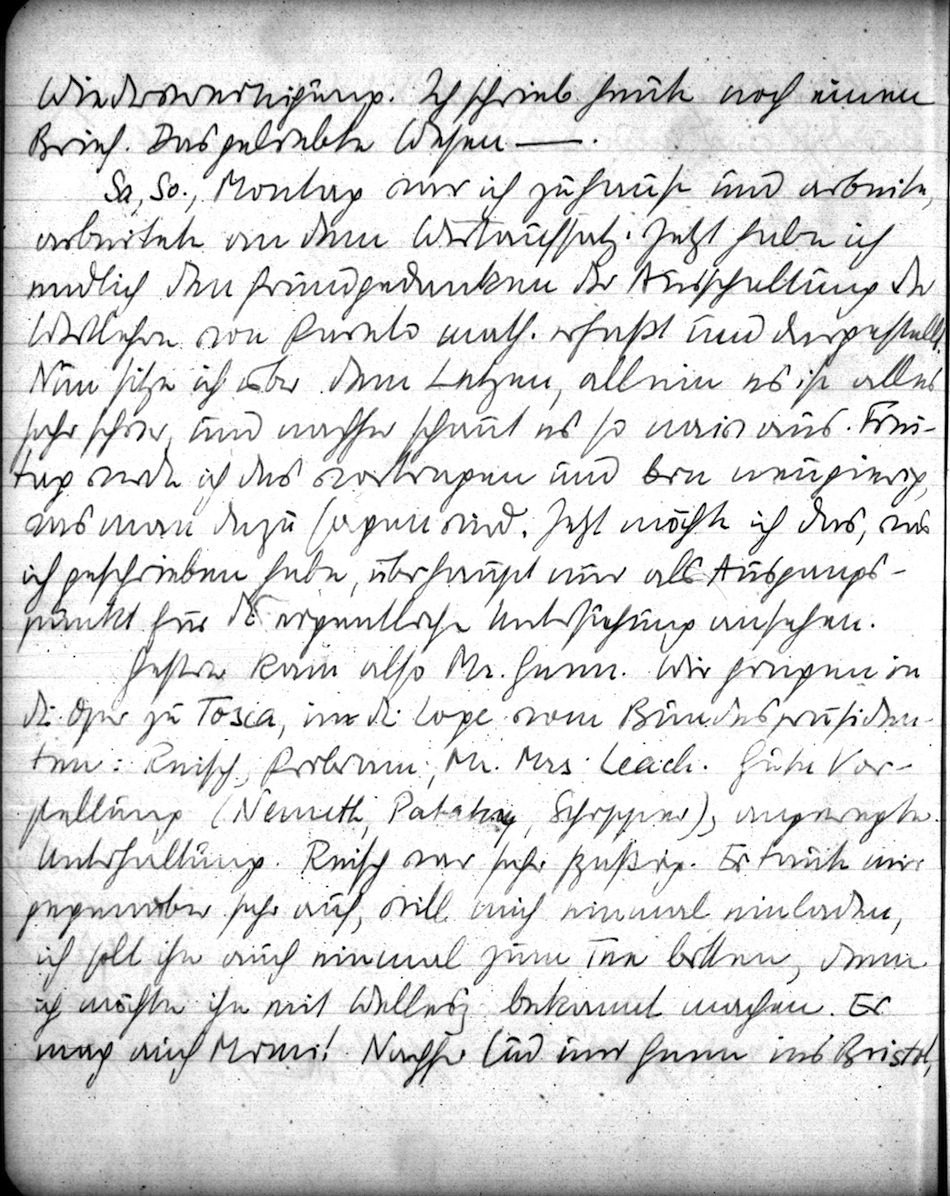 Ich schrieb heute noch einen
Brief. Das geliebte Wesen —.
Sa, So., Montag war ich zuhause und arbeite,
arbeitete an dem Wertaufsatz. Jetzt habe ich
endlich den Grundgedanken der Ausschaltung der
Wertlehre von Pareto math. erfaßt und dargestellt.
Nun sitze ich über dem Letzten, allein es ist alles
sehr schwer, und nachher schaut es so naiv aus. Frei-
tag werde ich das vortragen und bin neugierig,
was man dazu sagen wird. Jetzt möchte ich das, was
ich geschrieben habe, überhaupt nur als Ausgangs-
punkt für die eigentliche Untersuchung ansehen.
Gestern kam also Mr. Gunn. Wir gingen in
die Oper zu Tosca, in die Loge vom Bundespräsiden-
ten: Reisch, Pribram, Mr. Mrs. Leach. Gute Vor-
stellung (Nemeth, Pataky, Schipper), angeregte
Unterhaltung. Reisch war sehr spaßig. Er taute mir
gegenüber sehr auf, will mich einmal einladen,
ich soll ihn auch einmal zum Tee bitten, denn
ich möchte ihn mit Wellesz bekannt machen. Er
mag auch Mimi! Nachher lud uns Gunn ins Bristol,